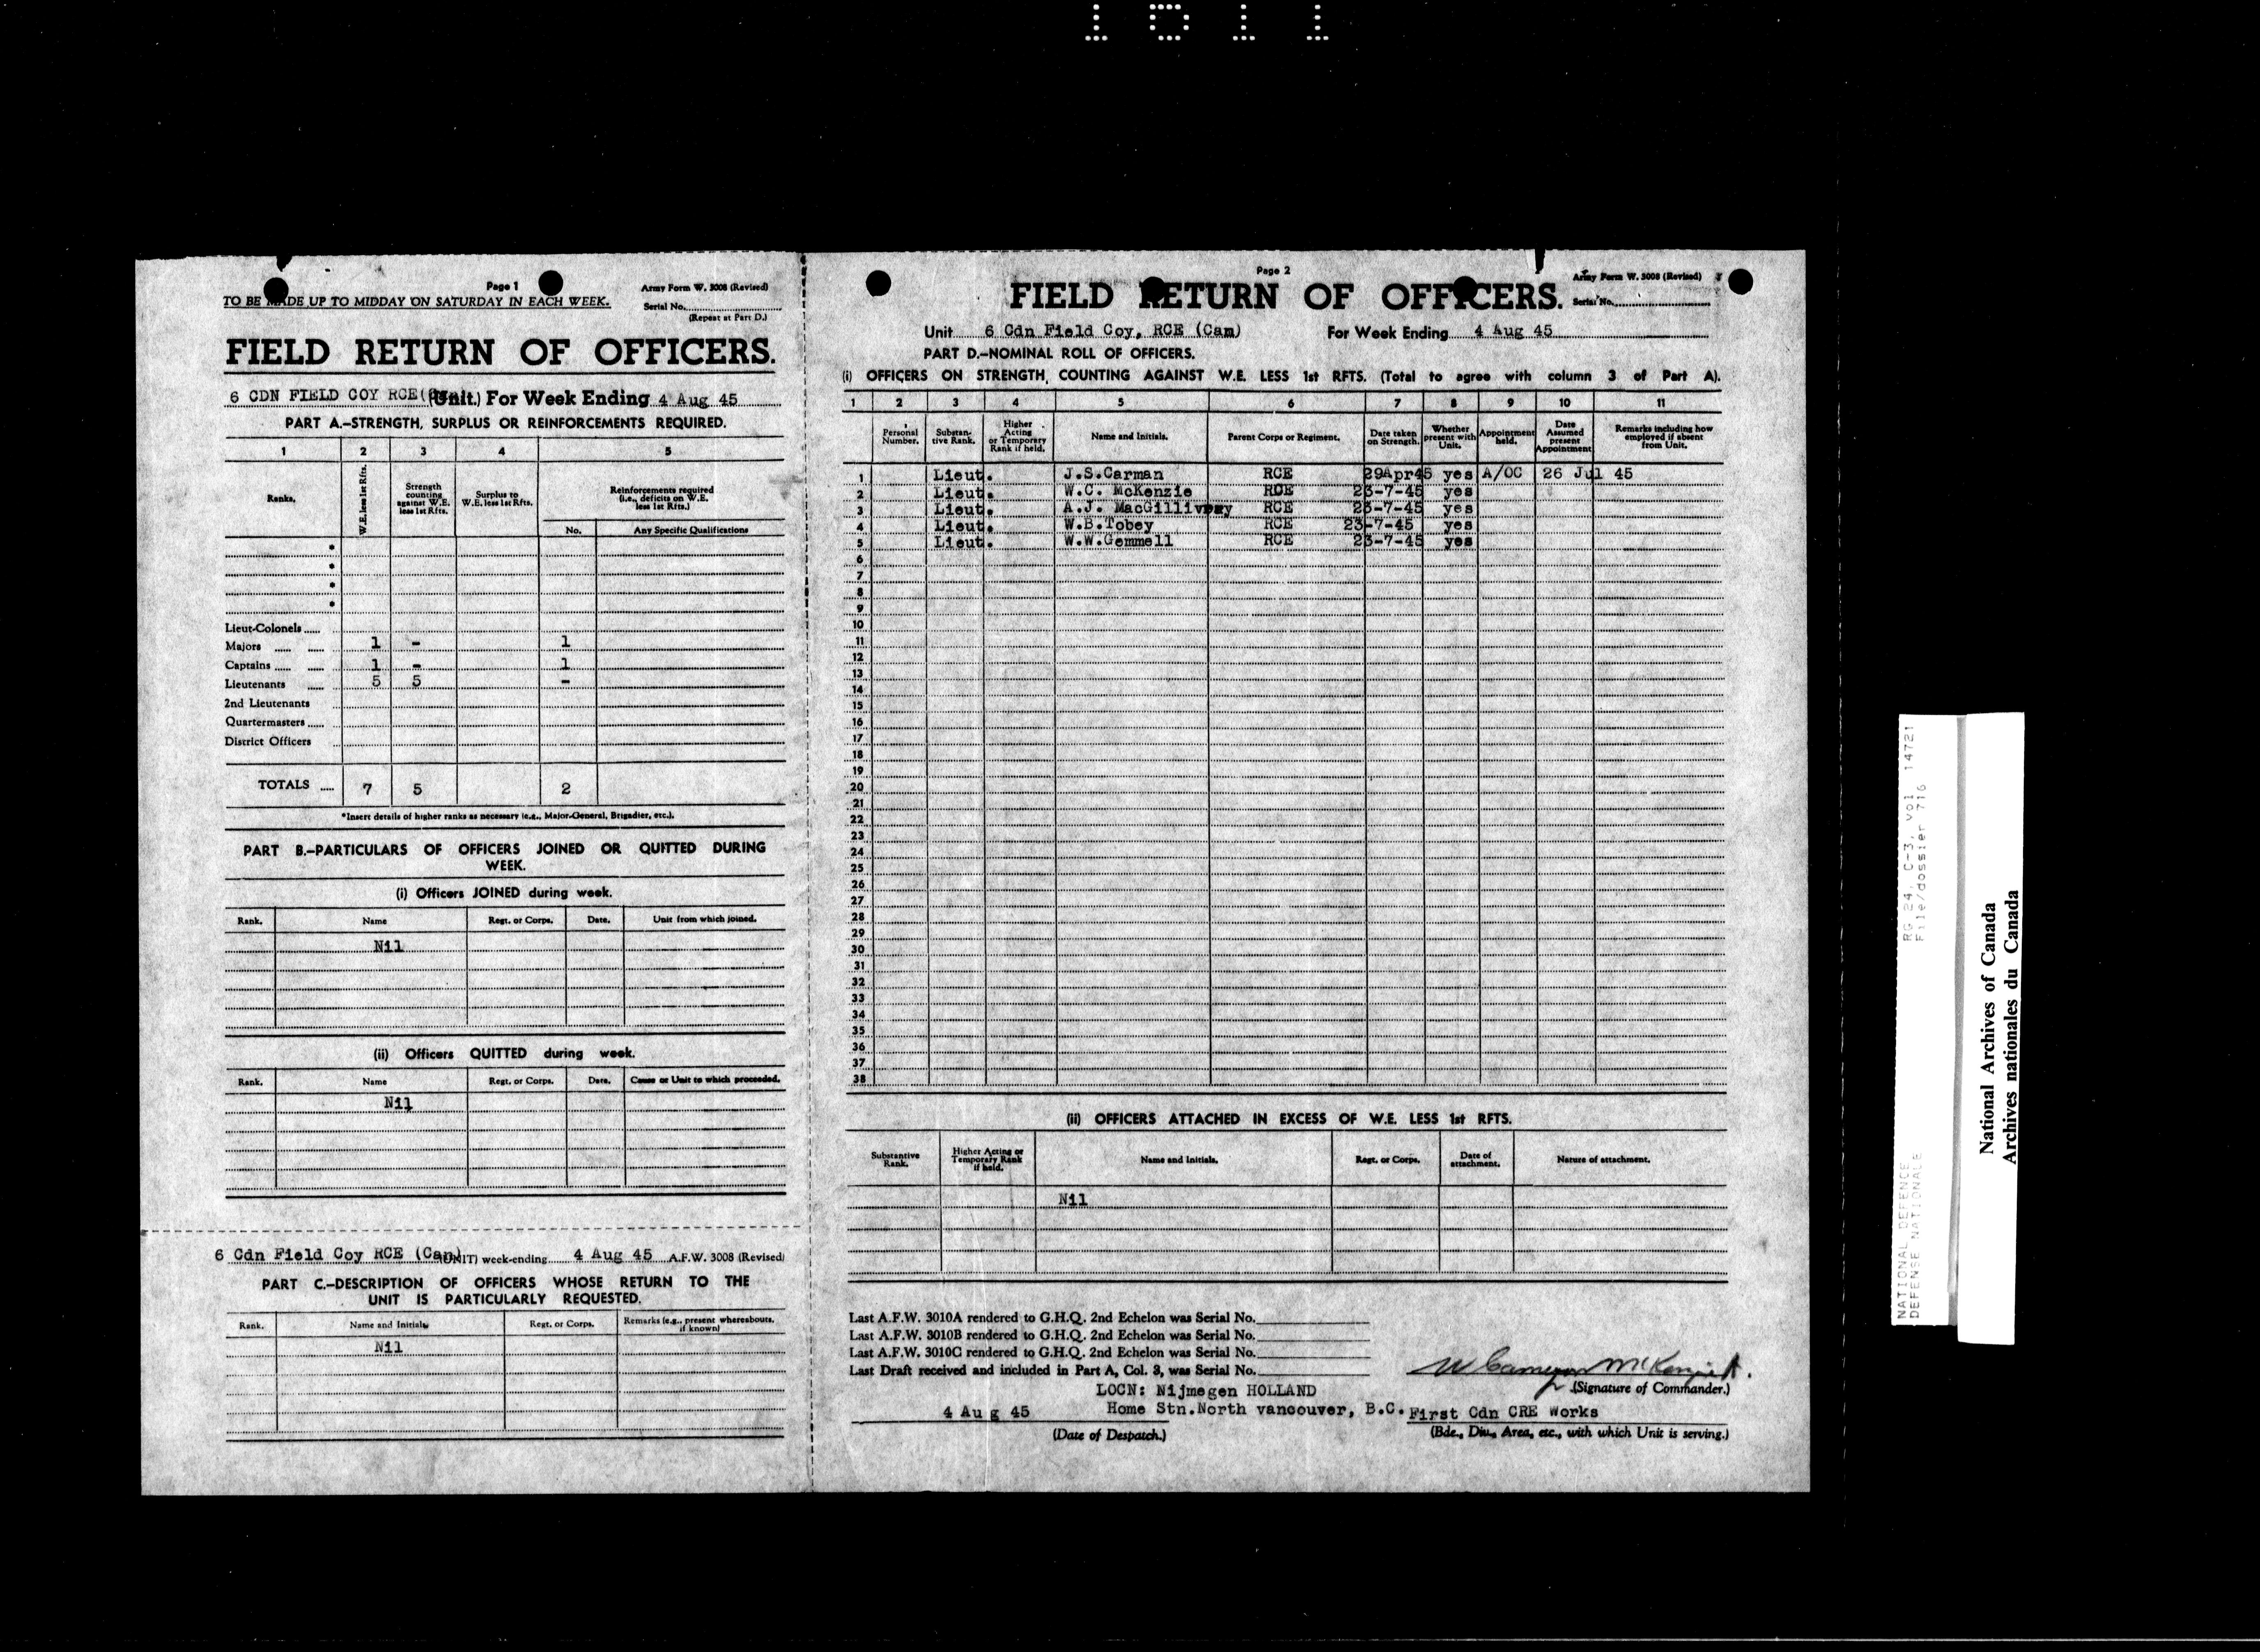 1011
Page 1
Army Form W. 3008 (Revised)
TO BE MADE UP TO MIDDAY ON SATURDAY IN EACH WEEK.
Serial No.
(Repeat at Part D.)
FIELD RETURN OF OFFICERS.
6 CDN FIELD COY RCE (Unit.) For Week Ending 4 Aug 45
PART A.-STRENGTH, SURPLUS OR REINFORCEMENTS REQUIRED.
1 2 3 4 5
Ranks. W.E. less 1st Rfts. Strength counting against W.E. less 1st Rfts. Surplus to W.E. less 1st Rfts. Reinforcements required (i.e., deficits on W.E. less 1st Rfts.)
No. Any Specific Qualifications
*
*
*
*
Lieut-Colonels
Majors 1 - 1
Captains 1 - 1
Lieutenants 5 5 -
2nd Lieutenants
Quartermasters
District Officers
TOTALS 7 5 2
*Insert details of higher ranks as necessary (e.g., Major-General, Brigadier, etc.).
PART B.-PARTICULARS OF OFFICERS JOINED OR QUITTED DURING
WEEK.
(i) Officers JOINED during week.
Rank. Name Regt. or Corps. Date. Unit from which joined.
Nil
(ii) Officers QUITTED during week.
Rank. Name Regt. or Corps. Date. Cause or Unit to which proceeded.
Nil
6 Cdn Field Coy RCE (Cam) (UNIT) week-ending 4 Aug 45 A.F.W. 3008 (Revised)
PART C.-DESCRIPTION OF OFFICERS WHOSE RETURN TO THE
UNIT IS PARTICULARLY REQUESTED.
Rank. Name and Initials Regt. or Corps. Remarks (e.g., present whereabouts, if known)
Nil
Page 2
Army Form W. 3008 (Revised)
FIELD RETURN OF OFFICERS.
Serial No.
Unit 6 Cdn Field Coy, RCE (Cam) For Week Ending 4 Aug 45
PART D.-NOMINAL ROLL OF OFFICERS.
(i) OFFICERS ON STRENGTH, COUNTING AGAINST W.E. LESS 1st RFTS. (Total to agree with column 3 of Part A).
1 2 3 4 5 6 7 8 9 10 11
Personal Number. Substantive Rank. Higher Acting or Temporary Rank if held. Name and Initials. Parent Corps or Regiment. Date taken on Strength. Whether present with Unit. Appointment held. Date Assumed present Appointment Remarks including how employed if absent from Unit.
1 Lieut. J.S.Carman RCE 29Apr45 yes A/OC 26 Jul 45
2 Lieut. W.C. McKenzie RCE 23-7-45 yes
3 Lieut. A.J. MacGillivray RCE 23-7-45 yes
4 Lieut. W.B.Tobey RCE 23-7-45 yes
5 Lieut. W.W.Gemmell RCE 23-7-45 yes
6
7
8
9
10
11
12
13
14
15
16
17
18
19
20
21
22
23
24
25
26
27
28
29
30
31
32
33
34
35
36
37
38
(ii) OFFICERS ATTACHED IN EXCESS OF W.E. LESS 1st RFTS.
Substantive Rank. Higher Acting or Temporary Rank if held. Name and Initials. Regt. or Corps. Date of attachment. Nature of attachment.
Nil
Last A.F.W. 3010A rendered to G.H.Q. 2nd Echelon was Serial No.
Last A.F.W. 3010B rendered to G.H.Q. 2nd Echelon was Serial No.
Last A.F.W. 3010C rendered to G.H.Q. 2nd Echelon was Serial No.
Last Draft received and included in Part A, Col. 3, was Serial No.
W Cameron McKenzie Lt.
(Signature of Commander.)
LOCN: Nijmegen HOLLAND
4 Aug 45 Home Stn.North vancouver, B.C. First Cdn CRE Works
(Date of Despatch.) (Bde., Div., Area, etc., with which Unit is serving.)
NATIONAL DEFENCE RG 24, C-3, vol 14721
DEFENSE NATIONALE File/dossier 716
National Archives of Canada
Archives nationales du Canada